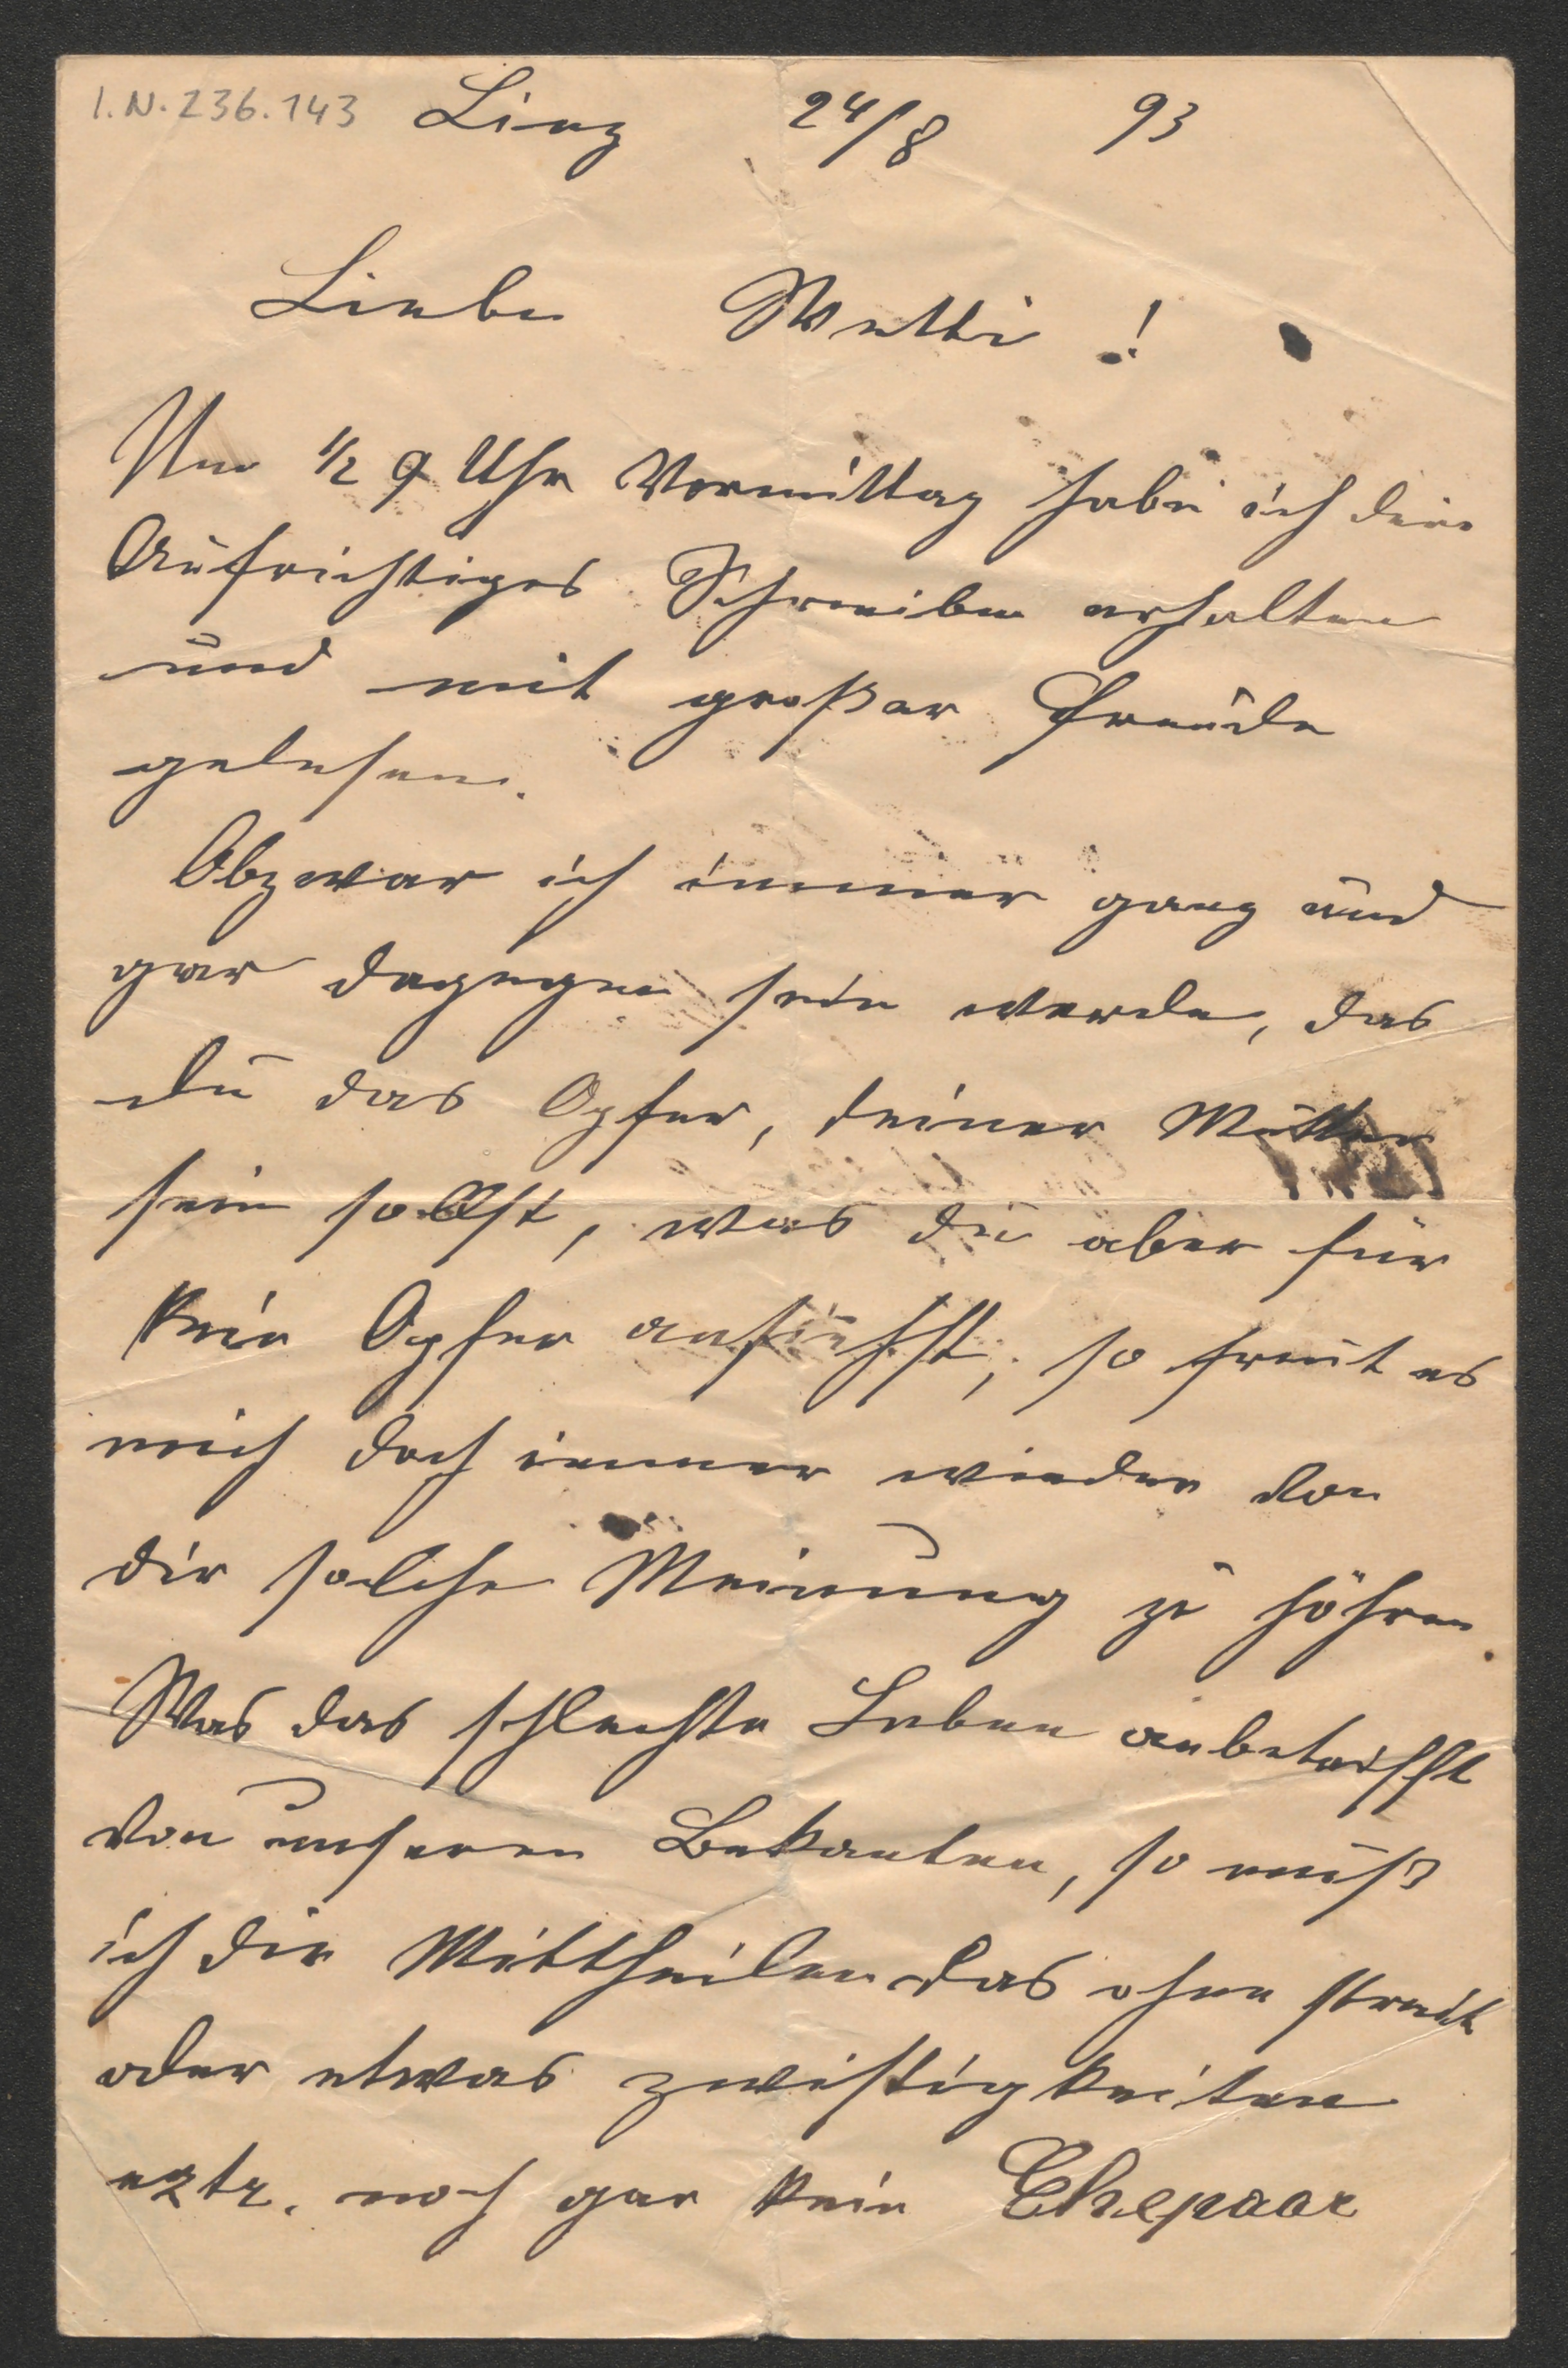 I.N. 236.143 Linz 24/8 93
Liebe Wetti !
Um 1/2 9 Uhr Vormittag habe ich dein
Aufrichtiges Schreiben erhalten
und mit großer Freude
gelesen.
Obzwar ich immer ganz und
gar dagegen sein werde, das
du das Opfer, deiner Mutter
sein sollst, was du aber für
kein Opfer ansiehst, so freut es
mich doch immer wieder von
dir solche Meinung zu höhren.
Was das schlechte Leben anbetrifft
von unseren Bekanten, so muß
ich dir Mittheilen das ohne streit
oder etwas zwistigkeiten
eztz. noch gar kein Ehepaar